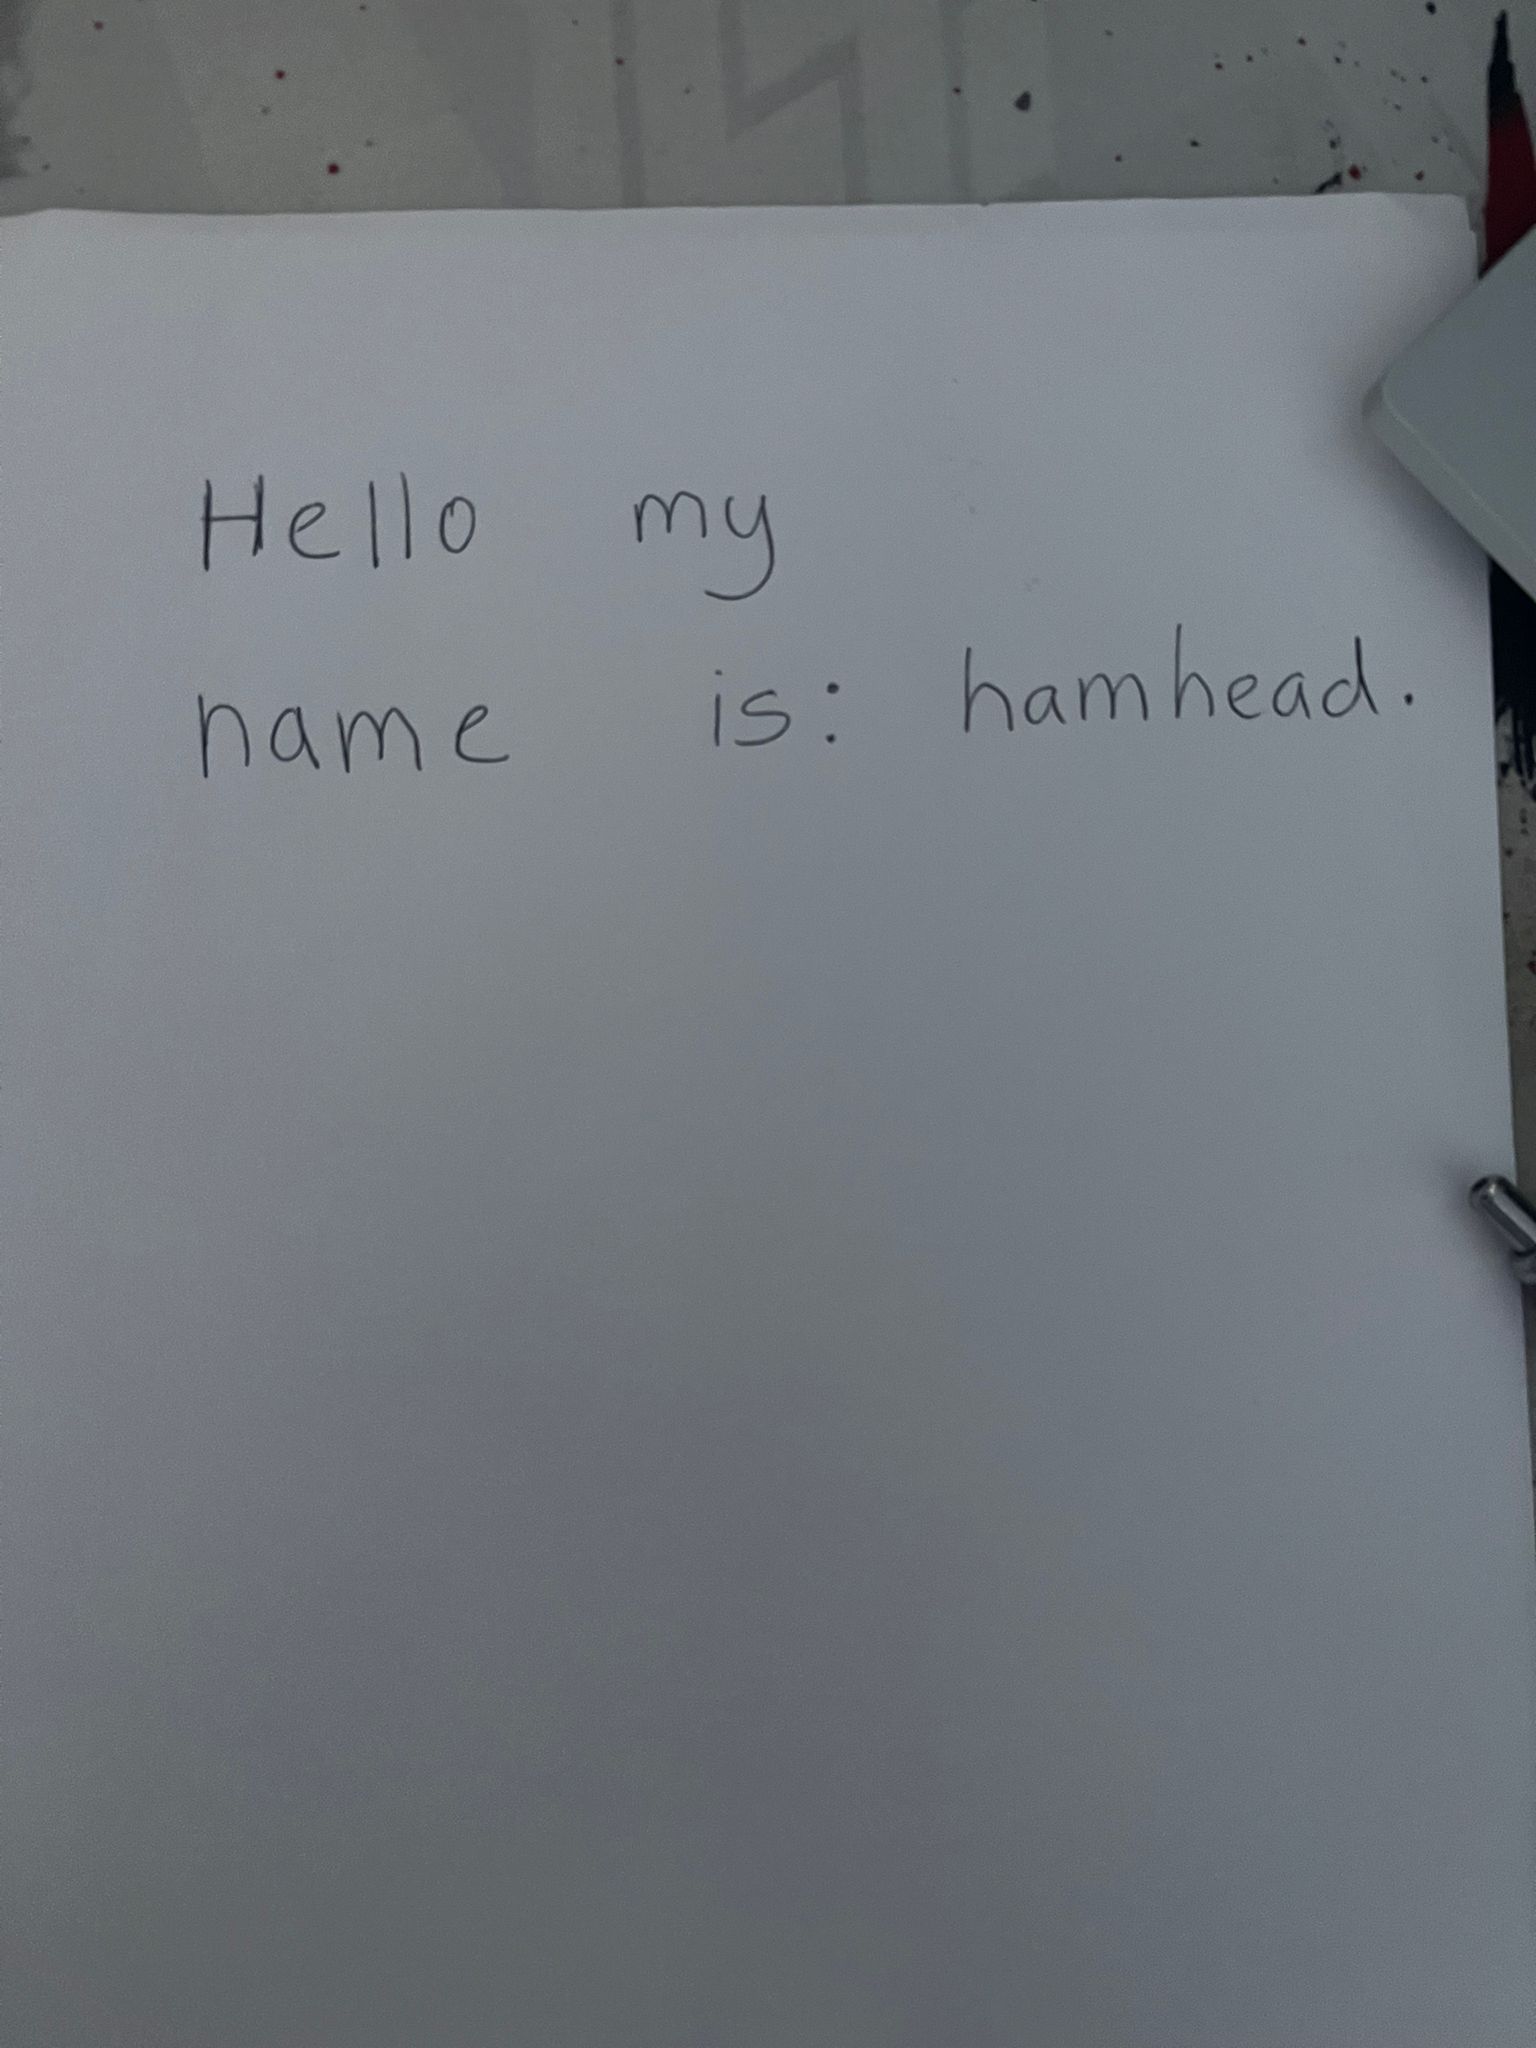 Hello my
name is: hamhead.